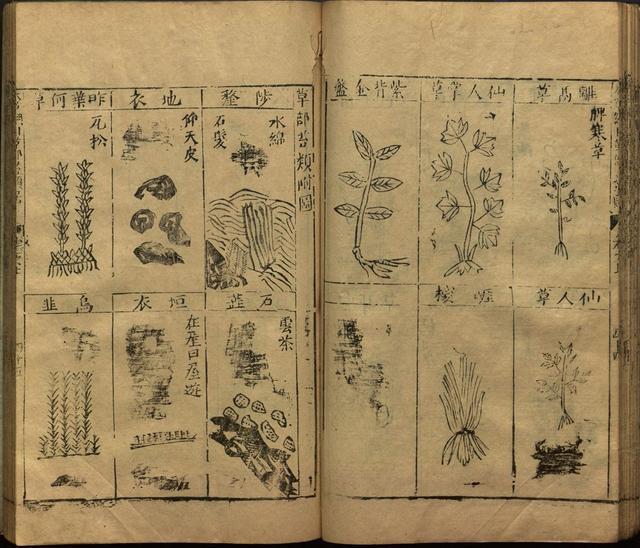 離鬲草
脾寒草
仙人掌草
紫背金盤
仙人草
草部苔類附圖
陟釐
水綿
石髮
地衣
仰天皮
昨葉何草
瓦松
雲茶
垣衣
在屋曰屋遊
烏韭